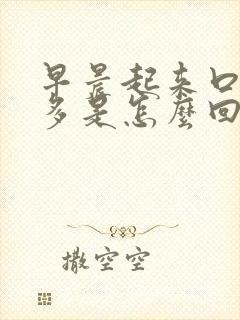 早晨起来口
多是怎麼回
撒空空